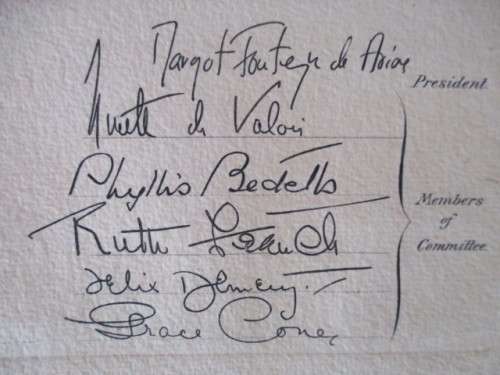 Margot Fonteyn de Arias
President
Ninette de Valois
Phyllis Bedells
Members
of
Committee
Ruth French
Felix Demery
Grace Cone